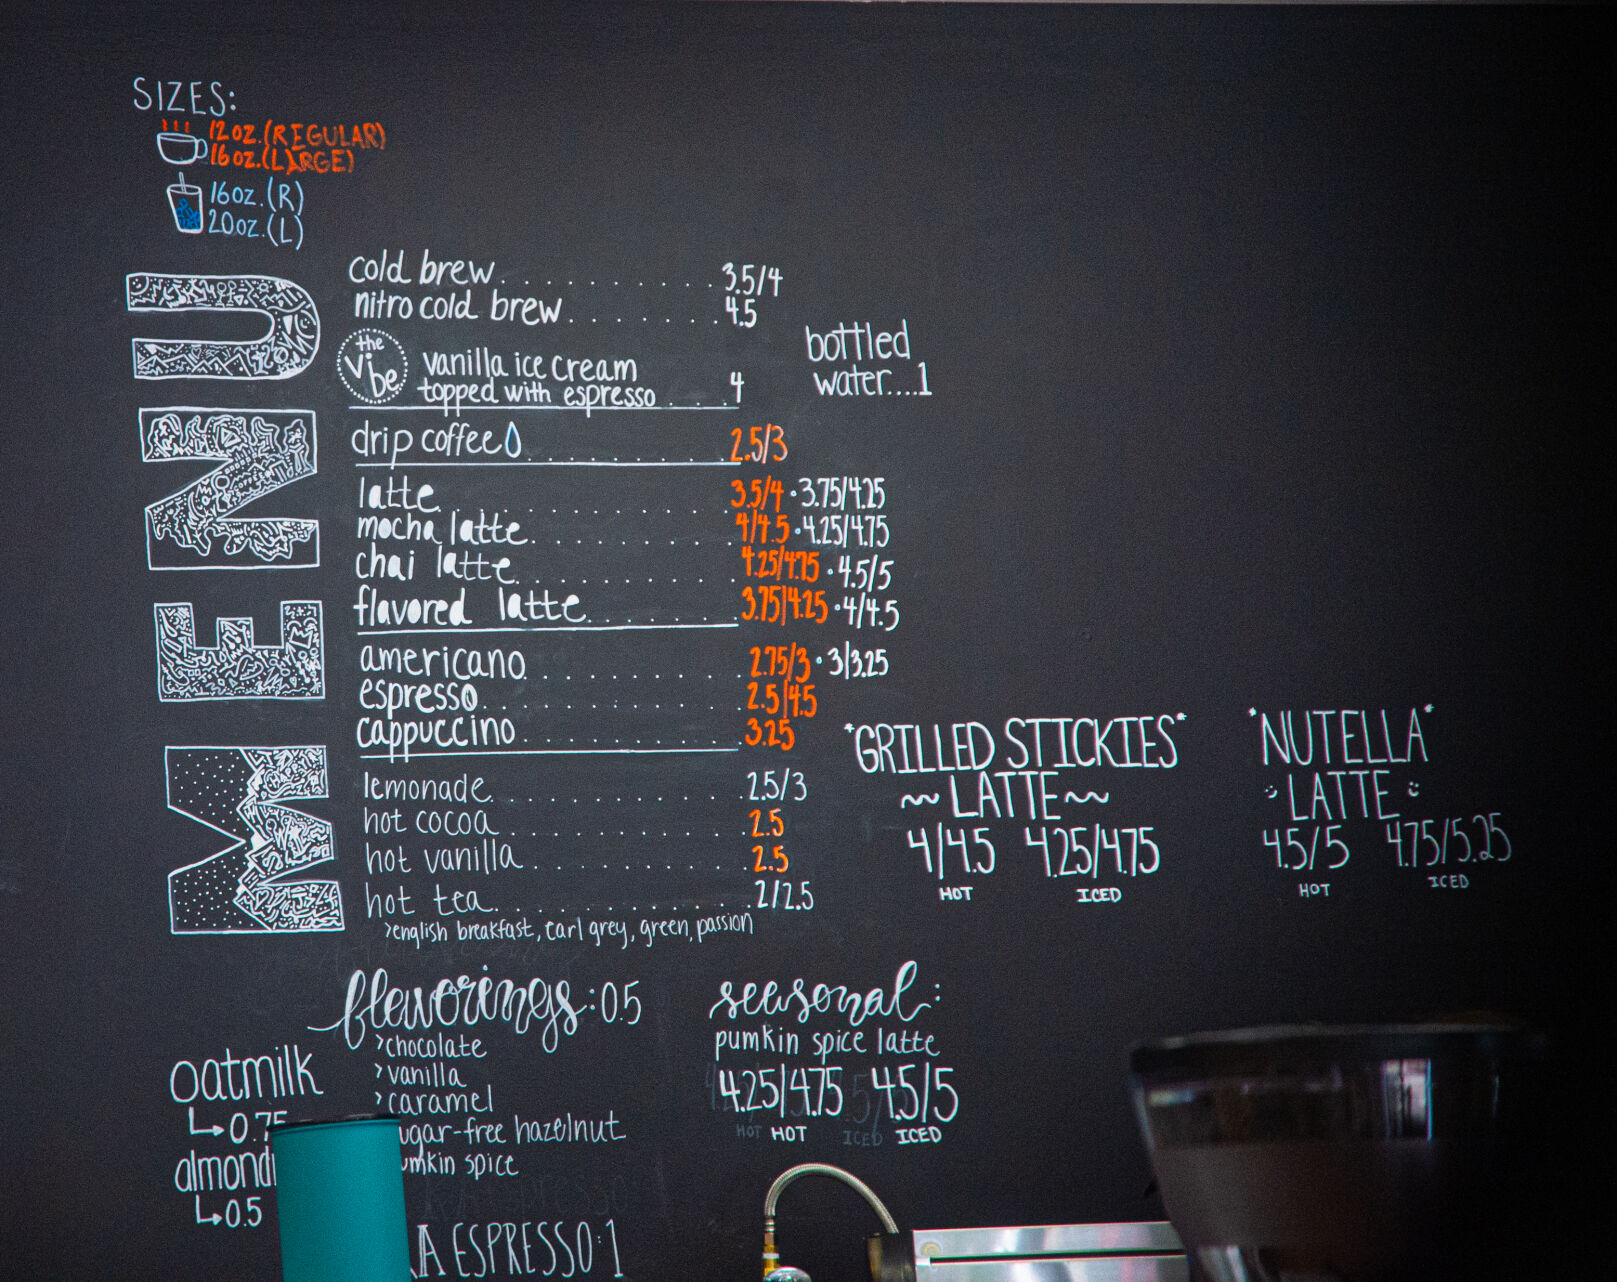 SIZES:
12oz.(REGULAR)
16oz.(LARGE)
16oz.(R)
20oz.(L)
MENU
cold brew..........3.5/4
nitro cold brew.......4.5
the vibe
vanilla ice cream
topped with espresso...4
bottled
water....1
drip coffee.........2.5/3
latte..........3.5/4 · 3.75/4.25
mocha latte.........4/4.5 · 4.25/4.75
chai latte..........4.25/4.75 · 4.5/5
flavored latte.......3.75/4.25 · 4/4.5
americano.........2.75/3 · 3/3.25
espresso..........2.5/4.5
cappuccino.........3.25
lemonade..........2.5/3
hot cocoa.........2.5
hot vanilla........2.5
hot tea..........2/2.5
>english breakfast, earl grey, green, passion
*GRILLED STICKIES*
~LATTE~
4/4.5 4.25/4.75
HOT ICED
*NUTELLA*
LATTE
4.5/5 4.75/5.25
HOT ICED
flavorings: 0.5
>chocolate
>vanilla
>caramel
ugar-free hazelnut
umkin spice
seasonal:
pumkin spice latte
4.25/4.75 4.5/5
HOT ICED
oatmilk
↳0.75
almond
↳0.5
RA ESPRESSO:1